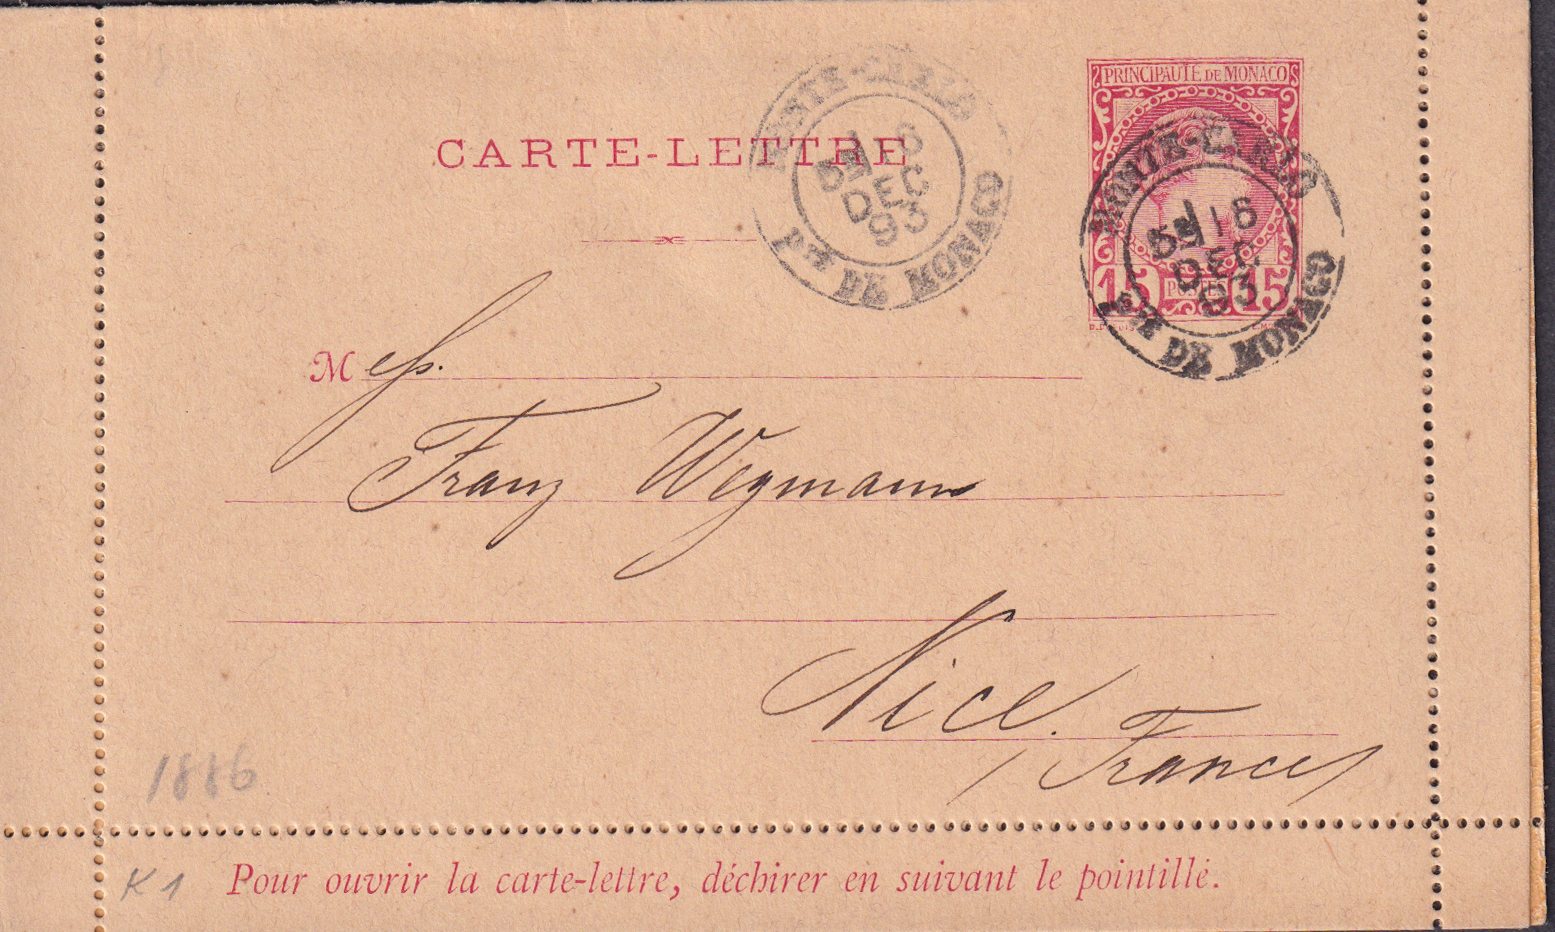 PRINCIPAUTÉ DE MONACO
CARTE-LETTRE
MONTE-CARLO
16
DEC
93
Pté DE MONACO
MONTE-CARLO
16
DEC
93
Pté DE MONACO
15 POSTES 15
Mess.
Franz Wegmann
Nice.
(France)
1886
K 1
Pour ouvrir la carte-lettre, déchirer en suivant le pointillé.